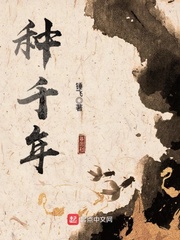 种千年
飞 著
起点中文网